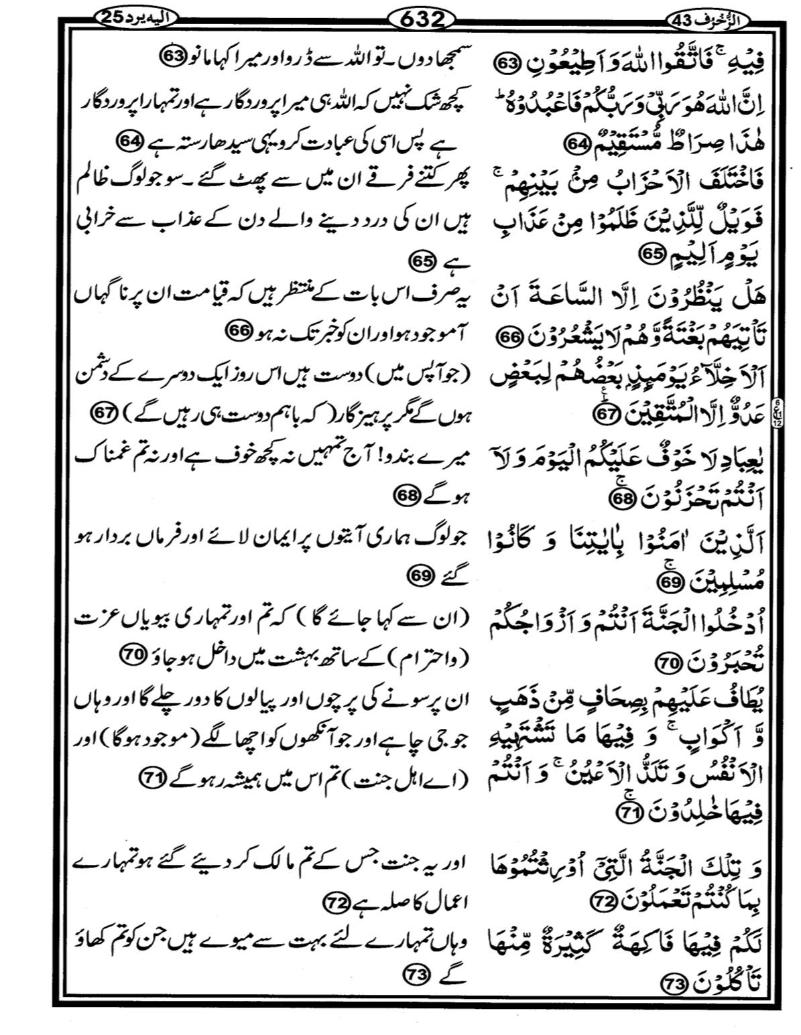 الزُّخۡرُف 43
632
الیہ یرد 25
فِيۡهِ ۚ فَاتَّقُوا اللّٰهَ وَ اَطِيۡعُوۡنِ 63
اِنَّ اللّٰهَ هُوَ رَبِّىۡ وَ رَبُّكُمۡ فَاعۡبُدُوۡهُ ؕ
هٰذَا صِرَاطٌ مُّسۡتَقِيۡمٌ 64
فَاخۡتَلَفَ الۡاَحۡزَابُ مِنۡۢ بَيۡنِهِمۡ ۚ
فَوَيۡلٌ لِّلَّذِيۡنَ ظَلَمُوۡا مِنۡ عَذَابِ
يَوۡمٍ اَلِيۡمٍ 65
هَلۡ يَنۡظُرُوۡنَ اِلَّا السَّاعَةَ اَنۡ
تَاۡتِيَهُمۡ بَغۡتَةً وَّ هُمۡ لَا يَشۡعُرُوۡنَ 66
اَلۡاَخِلَّآءُ يَوۡمَئِذٍۢ بَعۡضُهُمۡ لِبَعۡضٍ
عَدُوٌّ اِلَّا الۡمُتَّقِيۡنَ 67
يٰعِبَادِ لَا خَوۡفٌ عَلَيۡكُمُ الۡيَوۡمَ وَ لَاۤ
اَنۡتُمۡ تَحۡزَنُوۡنَ ۚ 68
اَلَّذِيۡنَ اٰمَنُوۡا بِاٰيٰتِنَا وَ كَانُوۡا
مُسۡلِمِيۡنَ ۚ 69
اُدۡخُلُوا الۡجَنَّةَ اَنۡتُمۡ وَ اَزۡوَاجُكُمۡ
تُحۡبَرُوۡنَ 70
يُطَافُ عَلَيۡهِمۡ بِصِحَافٍ مِّنۡ ذَهَبٍ
وَّ اَكۡوَابٍ ۚ وَ فِيۡهَا مَا تَشۡتَهِيۡهِ
الۡاَنۡفُسُ وَ تَلَذُّ الۡاَعۡيُنُ ۚ وَ اَنۡتُمۡ
فِيۡهَا خٰلِدُوۡنَ ۚ 71
وَ تِلۡكَ الۡجَنَّةُ الَّتِىۡۤ اُوۡرِثۡتُمُوۡهَا
بِمَا كُنۡتُمۡ تَعۡمَلُوۡنَ 72
لَكُمۡ فِيۡهَا فَاكِهَةٌ كَثِيۡرَةٌ مِّنۡهَا
تَاۡكُلُوۡنَ 73
سمجھا دوں۔ تو اللہ سے ڈرو اور میرا کہا مانو 63
کچھ شک نہیں کہ اللہ ہی میرا پروردگار ہے اور تمہارا پروردگار
ہے پس اسی کی عبادت کرو یہی سیدھا رستہ ہے 64
پھر کتنے فرقے ان میں سے پھٹ گئے ۔ سو جو لوگ ظالم
ہیں ان کی درد دینے والے دن کے عذاب سے خرابی
ہے 65
یہ صرف اس بات کے منتظر ہیں کہ قیامت ان پر ناگہاں
آموجود ہو اور ان کو خبر تک نہ ہو 66
(جو آپس میں) دوست ہیں اس روز ایک دوسرے کے دشمن
ہوں گے مگر پرہیزگار (کہ باہم دوست ہی رہیں گے) 67
میرے بندو! آج تمہیں نہ کچھ خوف ہے اور نہ تم غمناک
ہو گے 68
جو لوگ ہماری آیتوں پر ایمان لائے اور فرماں بردار ہو
گئے 69
(ان سے کہا جائے گا) کہ تم اور تمہاری بیویاں عزت
(و احترام) کے ساتھ بہشت میں داخل ہو جاؤ 70
ان پر سونے کی پرچوں اور پیالوں کا دور چلے گا اور وہاں
جو جی چاہے اور جو آنکھوں کو اچھا لگے (موجود ہوگا) اور
(اے اہل جنت) تم اس میں ہمیشہ رہو گے 71
اور یہ جنت جس کے تم مالک کر دیئے گئے ہو تمہارے
اعمال کا صلہ ہے 72
وہاں تمہارے لئے بہت سے میوے ہیں جن کو تم کھاؤ
گے 73